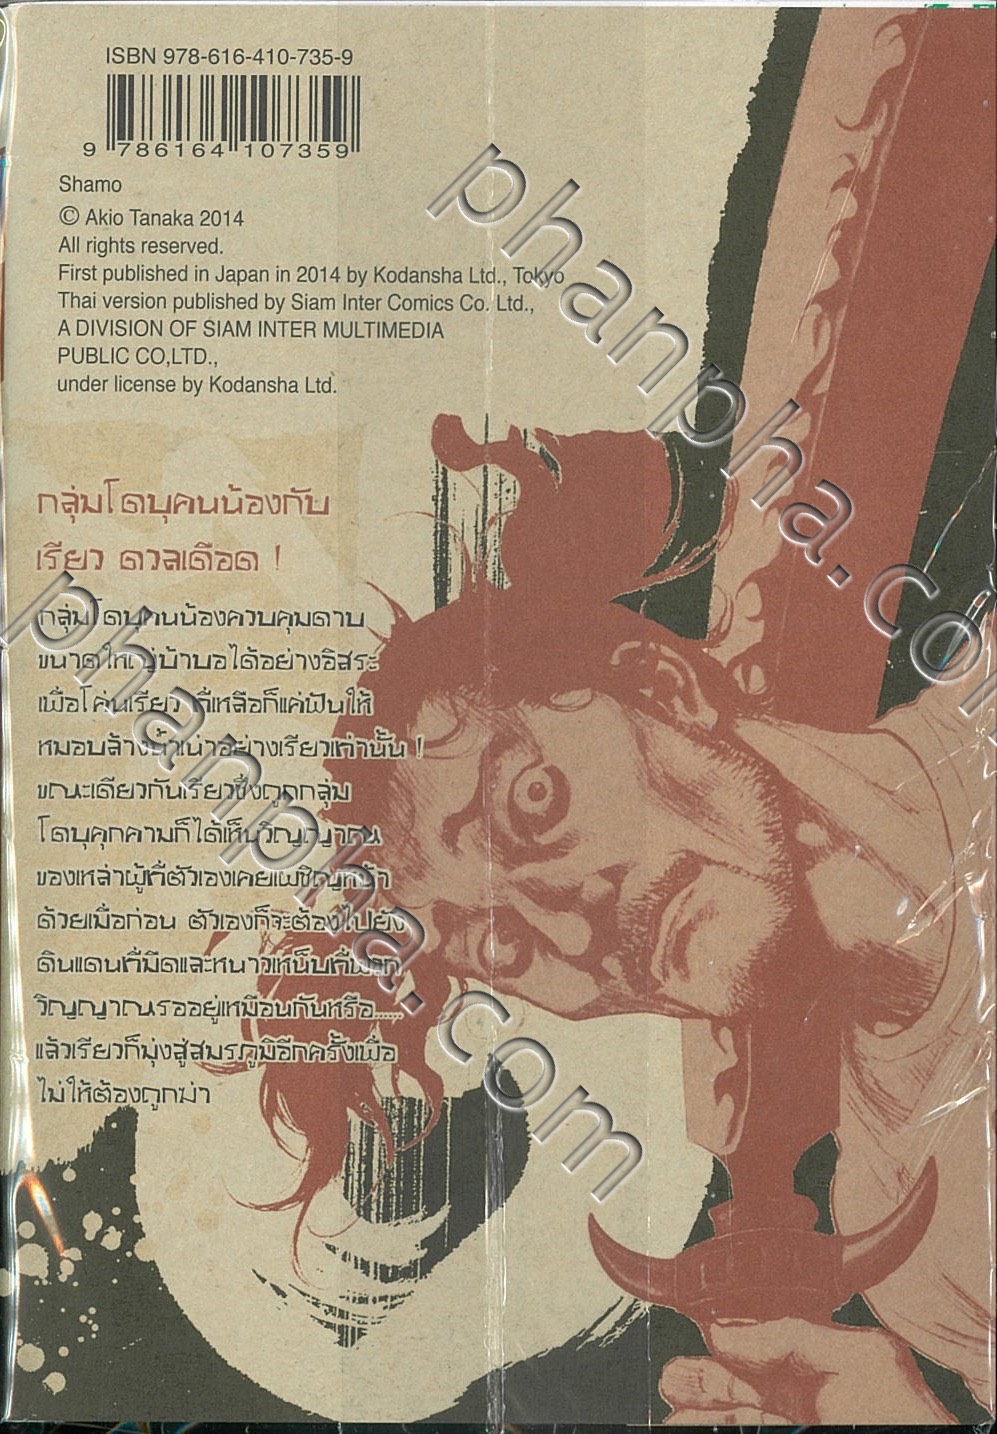 ISBN 978-616-410-735-9
9 786164 107359
Shamo
© Akio Tanaka 2014
All rights reserved.
First published in Japan in 2014 by Kodansha Ltd., Tokyo
Thai version published by Siam Inter Comics Co. Ltd.,
A DIVISION OF SIAM INTER MULTIMEDIA
PUBLIC CO,LTD.,
under license by Kodansha Ltd.
กลุ่มโดบุคนน้องกับ
เรียว ดวลเดือด !
กลุ่มโดบุคนน้องควบคุมดาบ
ขนาดใหญ่บ้าบอได้อย่างอิสระ
เพื่อโค่นเรียว ที่เหลือก็แค่ฟันให้
หมอบล้างน้ำเน่าอย่างเรียวเท่านั้น !
ขณะเดียวกันเรียวซึ่งถูกกลุ่ม
โดบุคุกคามก็ได้เห็นวิญญาณ
ของเหล่าผู้ที่ตัวเองเคยเผชิญหน้า
ด้วยเมื่อก่อน ตัวเองก็จะต้องไปยัง
ดินแดนที่มืดและหนาวเหน็บที่พวก
วิญญาณรออยู่เหมือนกันหรือ......
แล้วเรียวก็มุ่งสู่สมรภูมิอีกครั้งเพื่อ
ไม่ให้ต้องถูกฆ่า
phanpha.com
phanpha.com